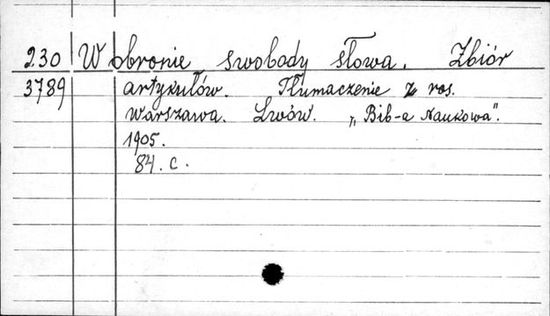 230 W obronie swobody słowa. Zbiór
3789 artykułów. Tłumaczenie z ros.
Warszawa. Lwów. „Bib-a Naukowa".
1905.
84. c.